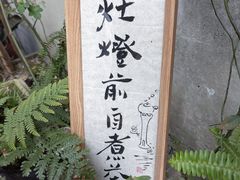 灶燈前自煮茶